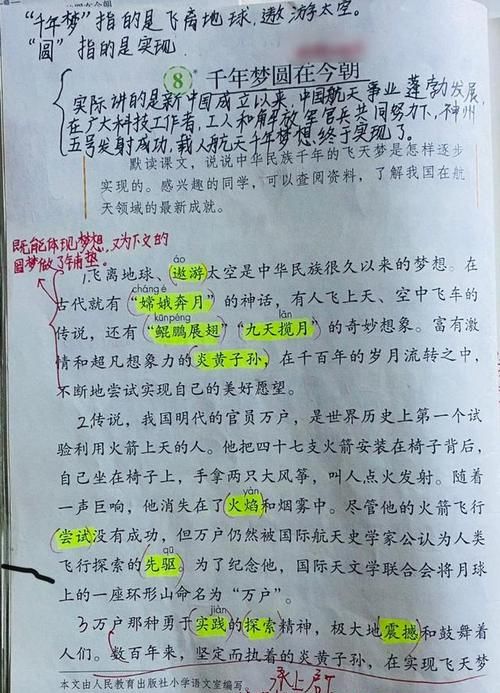 “千年梦”指的是飞离地球,遨游太空。
“圆”指的是实现
8 千年梦圆在今朝
实际讲的是新中国成立以来,中国航天事业蓬勃发展,
在广大科技工作者,工人和解放军官兵共同努力下,神州
五号发射成功,载人航天千年梦想终于实现了。
默读课文,说说中华民族千年的飞天梦是怎样逐步
实现的。感兴趣的同学,可以查阅资料,了解我国在航
天领域的最新成就。
既能体现梦想,又为下文的
圆梦做了铺垫。
áo
1.飞离地球、遨游太空是中华民族很久以来的梦想。在
cháng é
古代就有“嫦娥奔月”的神话,有人飞上天、空中飞车的
kūnpéng lǎn
传说,还有“鲲鹏展翅”“九天揽月”的奇妙想象。富有激
情和超凡想象力的炎黄子孙,在千百年的岁月流转之中,
不断地尝试实现自己的美好愿望。
2传说,我国明代的官员万户,是世界历史上第一个试
验利用火箭上天的人。他把四十七支火箭安装在椅子背后,
自己坐在椅子上,手拿两只大风筝,叫人点火发射。随着
yàn
一声巨响,他消失在了火焰和烟雾中。尽管他的火箭飞行
尝试没有成功,但万户仍然被国际航天史学家公认为人类
qū
飞行探索的先驱。为了纪念他,国际天文学联合会将月球
上的一座环形山命名为“万户”。
jiàn
3万户那种勇于实践的探索精神,极大地震撼和鼓舞着
人们。数百年来,坚定而执着的炎黄子孙,在实现飞天梦
本文由人民教育出版社小学语文室编写
承上启下